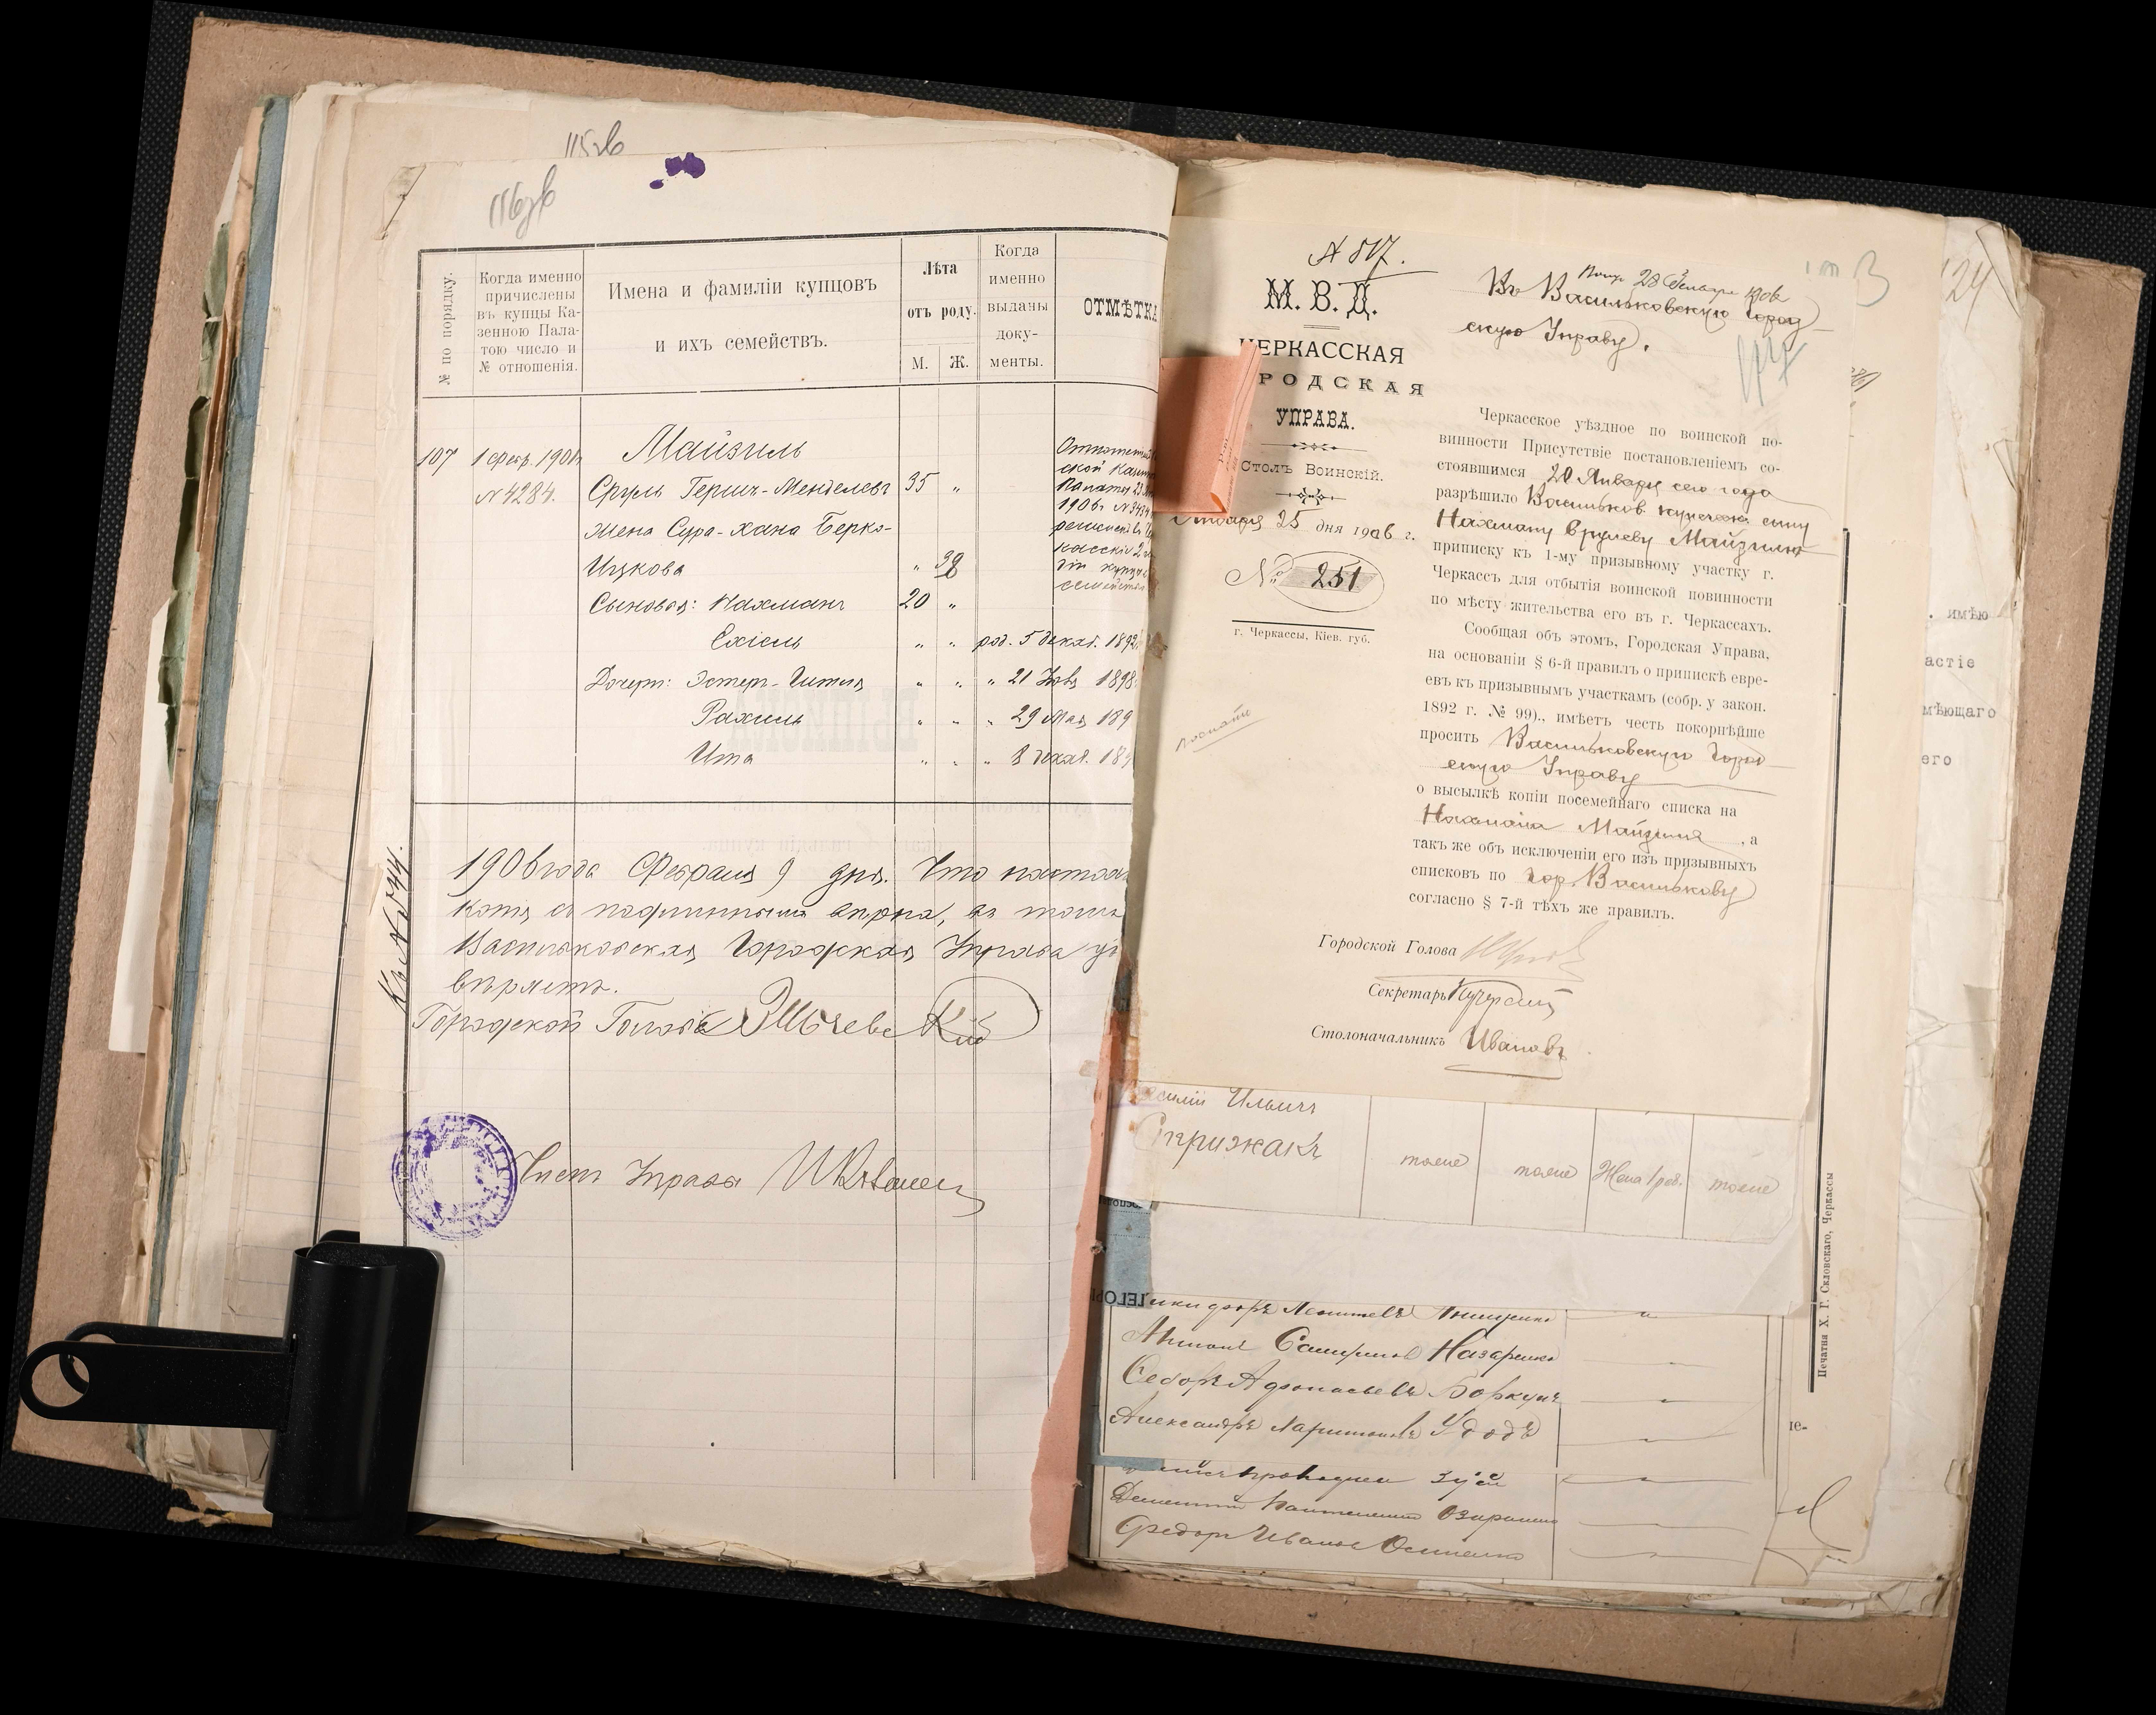 115об
116об
№ по порядку.
Когда именно
причислены
въ купцы Ка-
зенною Пала-
тою число и
№ отношенія.
Имена и фамиліи купцовъ
и ихъ семействъ.
Лѣта
отъ роду.
М. Ж.
Когда
именно
выданы
доку-
менты.
ОТМѢТКА
107 1 февр. 1901 Майзиль
№ 4284. Сруль Гершъ-Менделевъ 35 „
Жена Сура-Хана Берко-
Ицкова „ 38
Сыновья: Нахманъ 20 „
Ехіель „ „ род. 5 декаб. 1892
Дочери: Эстеръ-Гитля „ „ „ 21 Нояб 1898
Рахиль „ „ „ 29 Мая 189
Ита „ „ „ 8 декаб. 189
ской Казен
Палаты 23
1906 г. №3434
касскіе 2 г
діи купцы с
семейством
1906 года Февраля 9 дня. Что настоя
копія съ подлиннымъ вѣрна, въ томъ
Васильковская Городская Управа у
вѣряетъ.
Городской Голова
Членъ Управы
Къ № 544.
№ 517.
М. В. Д.
ЧЕРКАССКАЯ
РОДСКАЯ
УПРАВА.
Столъ Воинскій.
Января 25 дня 1906 г.
№ 251
г. Черкассы, Кіев. губ.
Получ 28 Января 1906
Въ Васильковскую Город
скую Управу.
Черкасское уѣздное по воинской по-
винности Присутствіе постановленіемъ со-
стоявшимся 20 Января сего года
разрѣшило Васильков. купеческ. сыну
Нахману Срулеву Майзилю
приписку къ 1-му призывному участку г.
Черкассъ для отбытія воинской повинности
по мѣсту жительства его въ г. Черкассахъ.
Сообщая объ этомъ, Городская Управа,
на основаніи § 6-й правилъ о припискѣ евре-
евъ къ призывнымъ участкамъ (собр. у закон.
1892 г. № 99)., имѣетъ честь покорнѣйше
просить Васильковскую Город
скую Управу
о высылкѣ копіи посемейнаго списка на
Нахмана Майзиля, а
такъ же объ исключеніи его изъ призывныхъ
списковъ по гор. Василькову
согласно § 7-й тѣхъ же правилъ.
Городской Голова
Секретарь
Столоначальникъ Ивановъ
Печатня Х. Г. Скловскаго, Черкассы
124
. имѣю
астіе
мѣющаго
его
силій Ильичъ
Стрижакъ тоже тоже Жена 1 реб. тоже
Назаренко
Боркунъ
Удодъ
Федоръ Ивановъ Осипенко